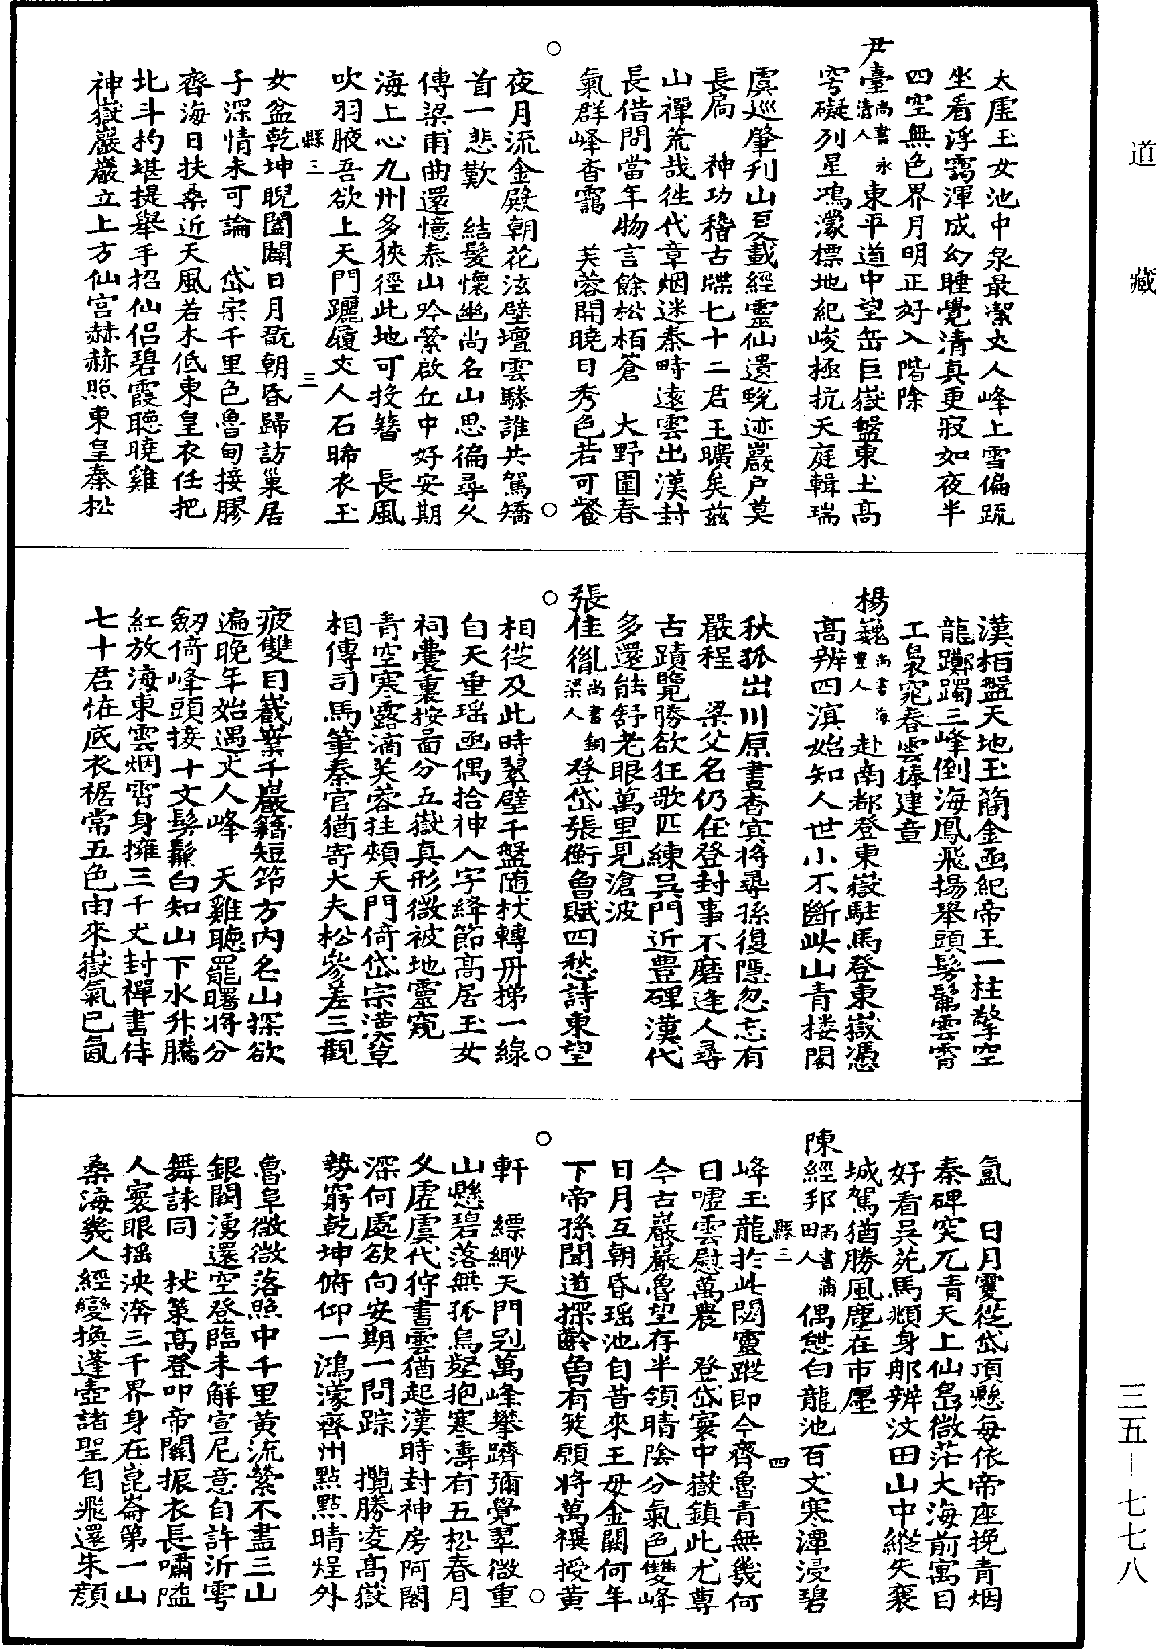 道藏
太虛玉女池中泉最潔丈人峰上雪偏䟽
坐看浮靄渾成幻睡覺清真更寂如夜半
四空無色界月明正好入階除
尹臺尚書永清人東平道中望岳巨嶽盤東土高
穹礙列星鴻濛標地紀峻極抗天庭輯瑞
虞廵肇刋山夏載經靈仙遺蛻迹巖戶莫
長扃　神功稽古牒七十二君王曠矣兹
山禪荒哉徃代章烟迷秦畤遠雲出漢封
長借問當年物言餘松栢蒼　大野圍春
氣群峰杳靄　芙蓉開曉日秀色若可餐
夜月流金殿朝花泫壁壇雲驂誰共駕矯
首一悲歎　結髮懷幽尚名山思徧尋久
傳梁甫曲還憶泰山吟縈啟丘中好安期
海上心九州多狹徑此地可投簪　長風
吹羽腋吾欲上天門躡履丈人石晞衣玉
縣三　三
女盆乾坤睨闔闢日月翫朝昏歸訪巢居
子深情未可論　岱宗千里色魯甸接膠
齊海日扶桑近天風若木低東皇衣任把
北斗杓堪提舉手招仙侣碧霞聴曉雞
神嶽巖巖立上方仙宫赫赫照東皇秦松
漢栢盤天地玉簡金函紀帝王一柱擎空
龍躑躅三峰倒海鳳飛揚舉頭髣髴雲霄
工裊窕春雲捧建章
楊巍尚書海豐人赴南都登東嶽駐馬登東嶽憑
高辨四溟始知人世小不斷此山青楼閣
秋狐出川原晝杳㝠将尋孫復隱忽忘有
嚴程　梁父名仍在登封事不磨逢人尋
古蹟覽勝欲狂歌匹練吳門近豊碑漢代
多還能舒老眼萬里見滄波
張佳胤尚書銅梁人登岱張衡魯賦四愁詩東望
相從及此時翠壁千盤随杖轉丹梯一線
自天垂瑶函偶拾神人字絳節高居玉女
祠囊裏按啚分五嶽真形微被地靈窺
青空寒露滴芙蓉拄頰天門倚岱宗漢草
相傳司馬筆秦官猶寄大夫松參差三觀
疲雙目嶻嶪千巖籍短笻方内名山探欲
遍晚年始遇丈人峰　天雞聴罷曙将分
劒倚峰頭接十文鬓鬚白知山下水升騰
紅放海東雲烟霄身擁三千丈封禪書侍
七十君恠底衣裾常五色由來嶽氣已氤
氲　日月寒從岱頂懸每依帝座挽青烟
秦碑突兀青天上仙島微茫大海前寓目
好看吳苑馬頰身那辨汶田山中縱矢裘
城駕猶勝風塵在市廛
陳經邦尚書莆田人偶憇白龍池百丈寒潭浸碧
縣三　四
峰玉龍於此閟靈蹤即今齊魯青無幾何
日嘘雲慰萬農　登岱寰中嶽鎮此尤尊
今古巖巖魯望存半領晴陰分氣色雙峰
日月互朝昏瑶池自昔來王母金闕何年
下帝孫聞道探齡曾有䇲願将萬襈授黄
軒　縹緲天門别萬峰攀躋彌覺翠微重
山懸碧落無孤鳥壑抱寒濤有五松春月
久虚虞代狩書雲猶起漢時封神房阿閣
深何處欲向安期一問踪　攬勝凌高嶽
勢窮乾坤俯仰一鴻濛齊州點點晴煙外
魯阜微微落照中千里黄流縈不盡三山
銀闕湧還空登臨未解宣尼意自許沂雩
舞詠同　杖策高登叩帝關振衣長嘯隘
人寰眼摇泱漭三千界身在崑崙第一山
桑海幾人經變換蓬壺諸聖自飛還朱顔
三五—七七八